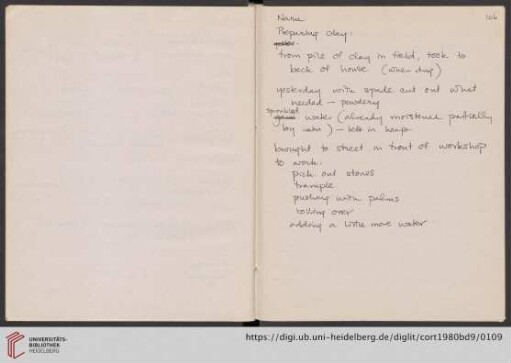 106
Preparing clay:
from pile of clay in field, took to
back of house (when dry)
yesterday with spade cut out what
needed – powdery
sprinkled
water (already moistened partially
by rain) – left in heap
brought to street in front of workshop
to work.
pick out stones
trample
pushing with palms
rolling over
adding a little more water
UNIVERSITÄTS-
BIBLIOTHEK
HEIDELBERG
https://digi.ub.uni-heidelberg.de/diglit/cort1980bd9/0109